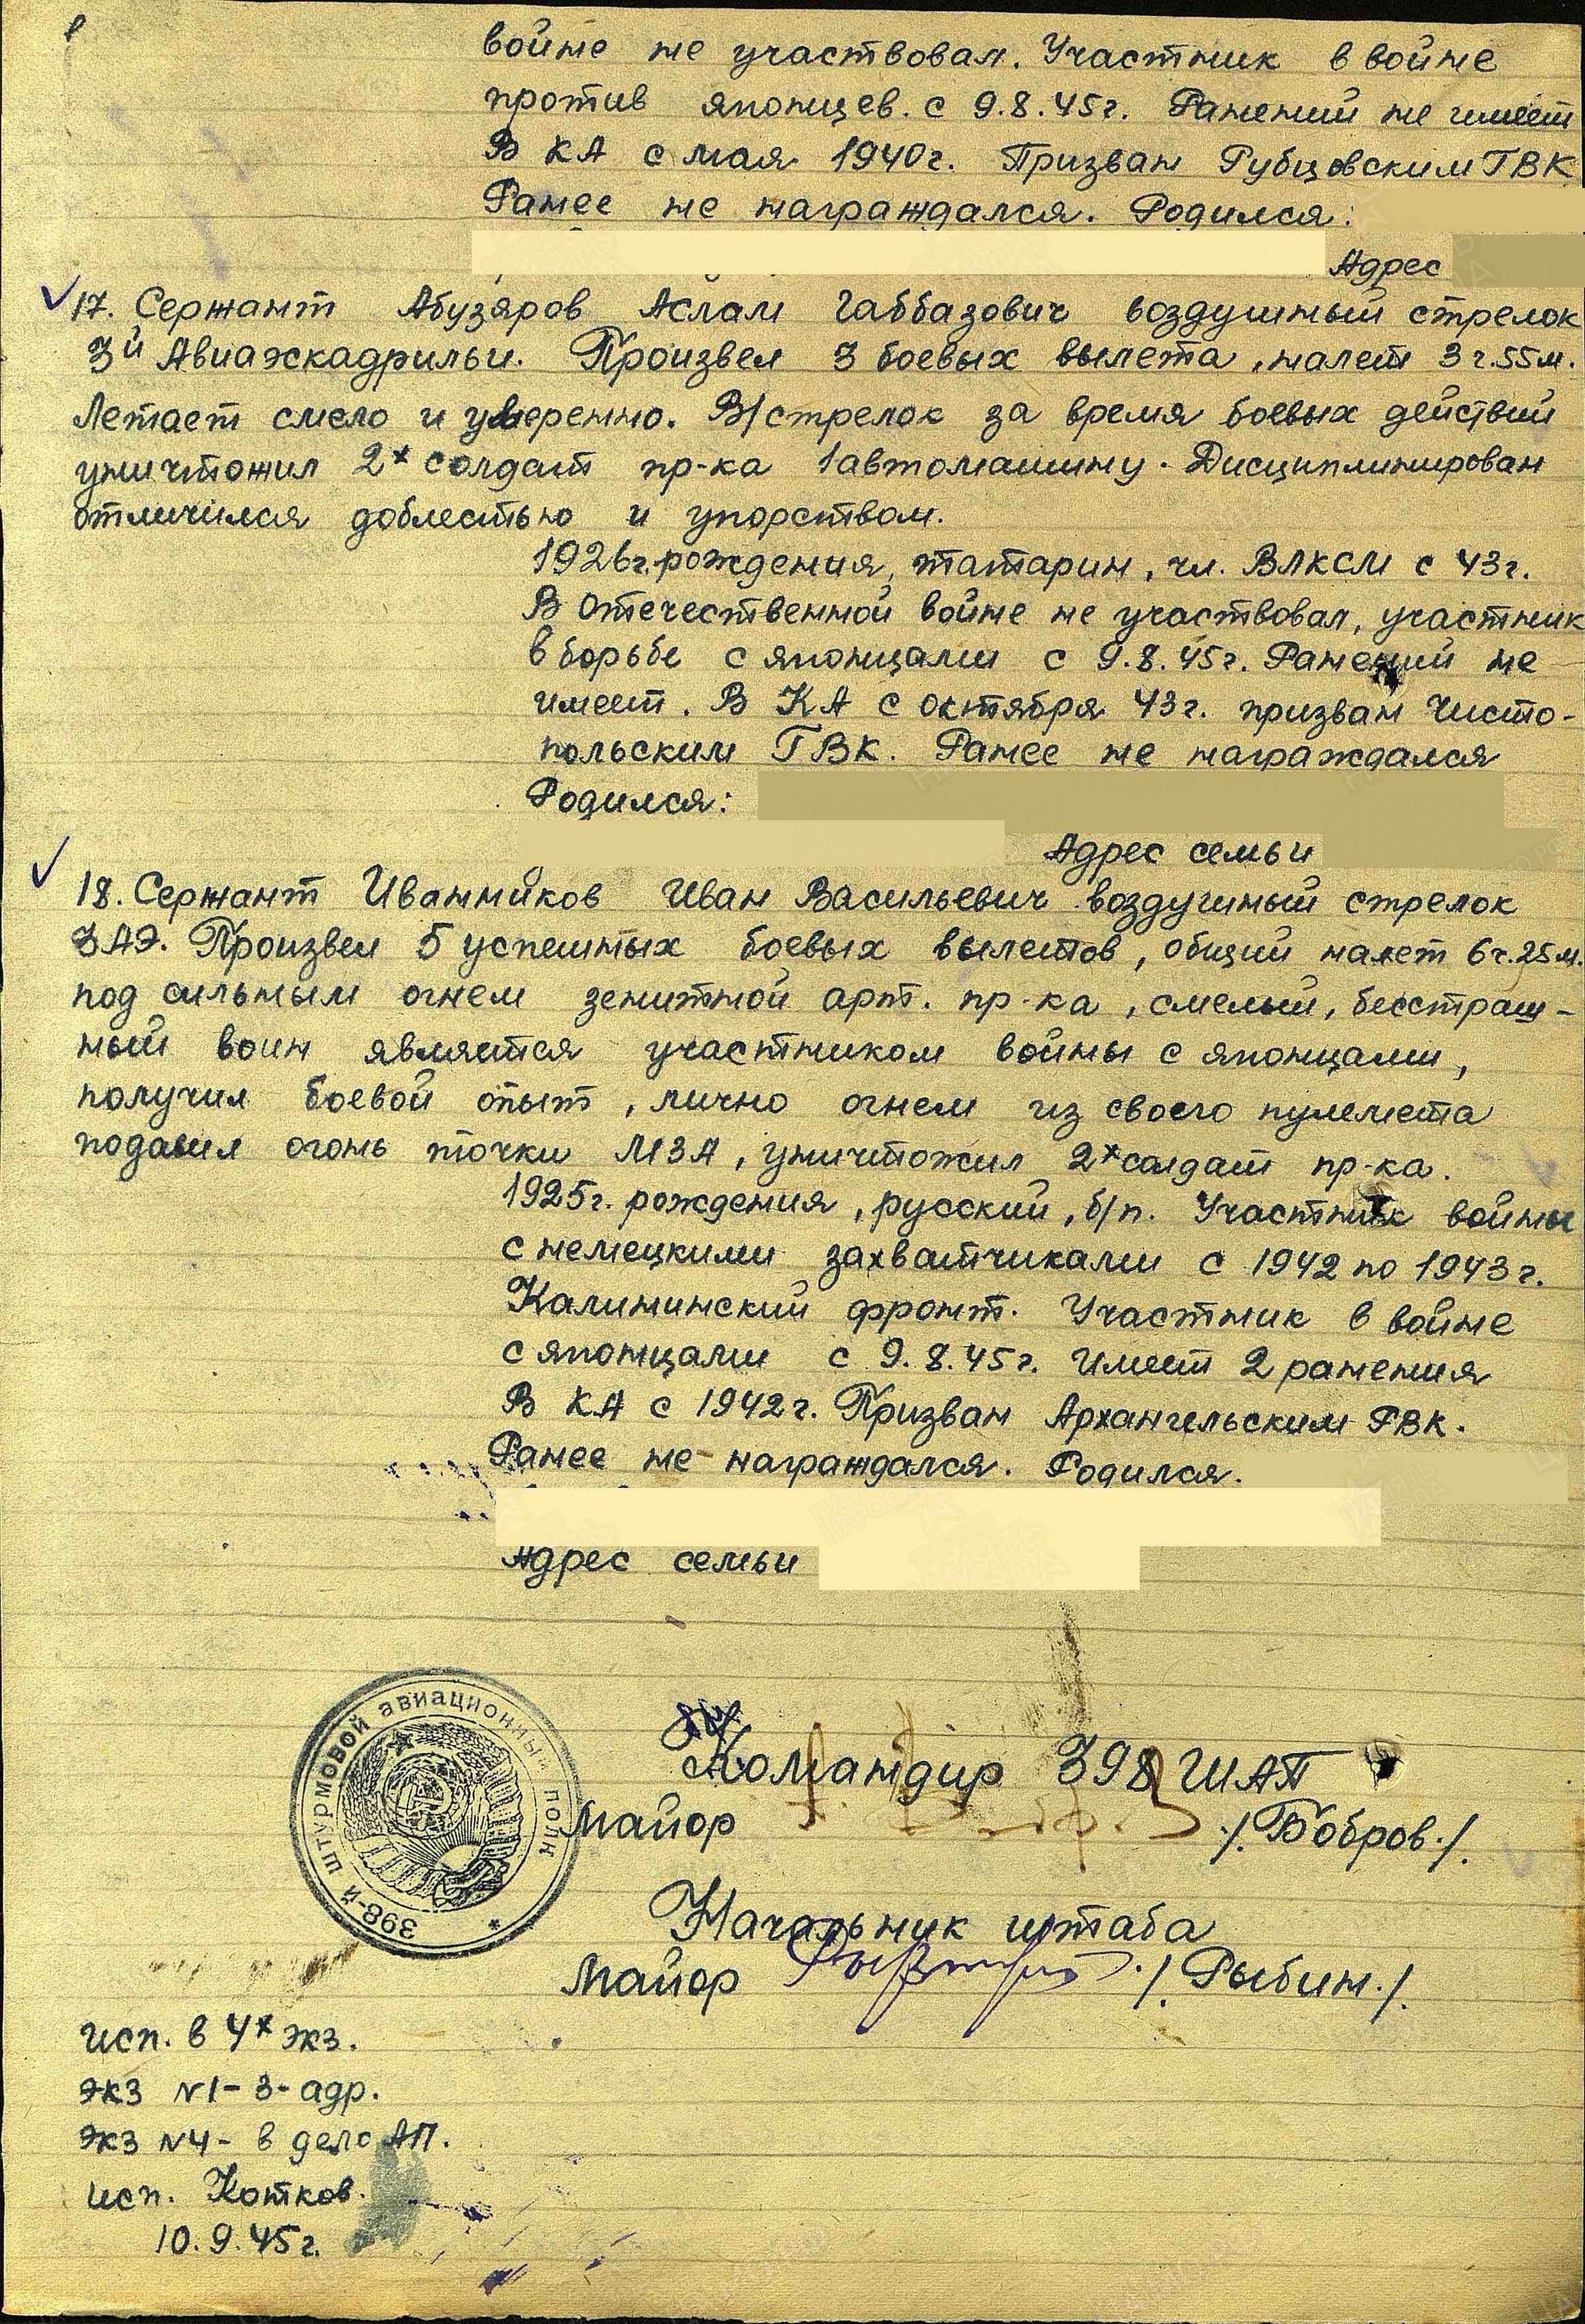 войне не участвовал. Участник в войне
против японцев. с 9.8.45г. Ранений не имеет
В КА с мая 1940г. Призван Рубцовским ГВК
Ранее не награждался. Родился:
Адрес
17. Сержант Абузяров Аслам Габбазович воздушный стрелок
3й Авиаэскадрильи. Произвел 3 боевых вылета, налет 3ч.55м.
Летает смело и уверенно. В/стрелок за время боевых действий
уничтожил 2х солдат пр-ка 1 автомашину. Дисциплинирован
отличился доблестью и упорством.
1926г. рождения, татарин, чл. ВЛКСМ с 43г.
В Отечественной войне не участвовал, участник
в борьбе с японцами с 9.8.45г. Ранений не
имеет. В КА с октября 43г. призван Чисто-
польским ГВК. Ранее не награждался
Родился:
Адрес семьи
18. Сержант Иванников Иван Васильевич воздушный стрелок
3 АЭ. Произвел 5 успешных боевых вылетов, общий налет 6ч.25м.
под сильным огнем зенитной арт. пр-ка, смелый, бесстраш-
ный воин является участником войны с японцами,
получил боевой опыт, лично огнем из своего пулемета
подавил огонь точки МЗА, уничтожил 2х солдат пр-ка.
1925г. рождения, русский, б/п. Участник войны
с немецкими захватчиками с 1942 по 1943г.
Калининский фронт. Участник в войне
с японцами с 9.8.45г. имеет 2 ранения
В КА с 1942г. Призван Архангельским РВК.
Ранее не награждался. Родился.
Адрес семьи
398-й штурмовой авиационный полк *
Командир 398 ШАП
Майор ./. Бобров ./.
Начальник штаба
Майор ./. Рыбин ./.
Исп. в 4х экз.
Экз N1-3- адр.
Экз N4- в дело АП.
Исп. Котков.
10.9.45г.